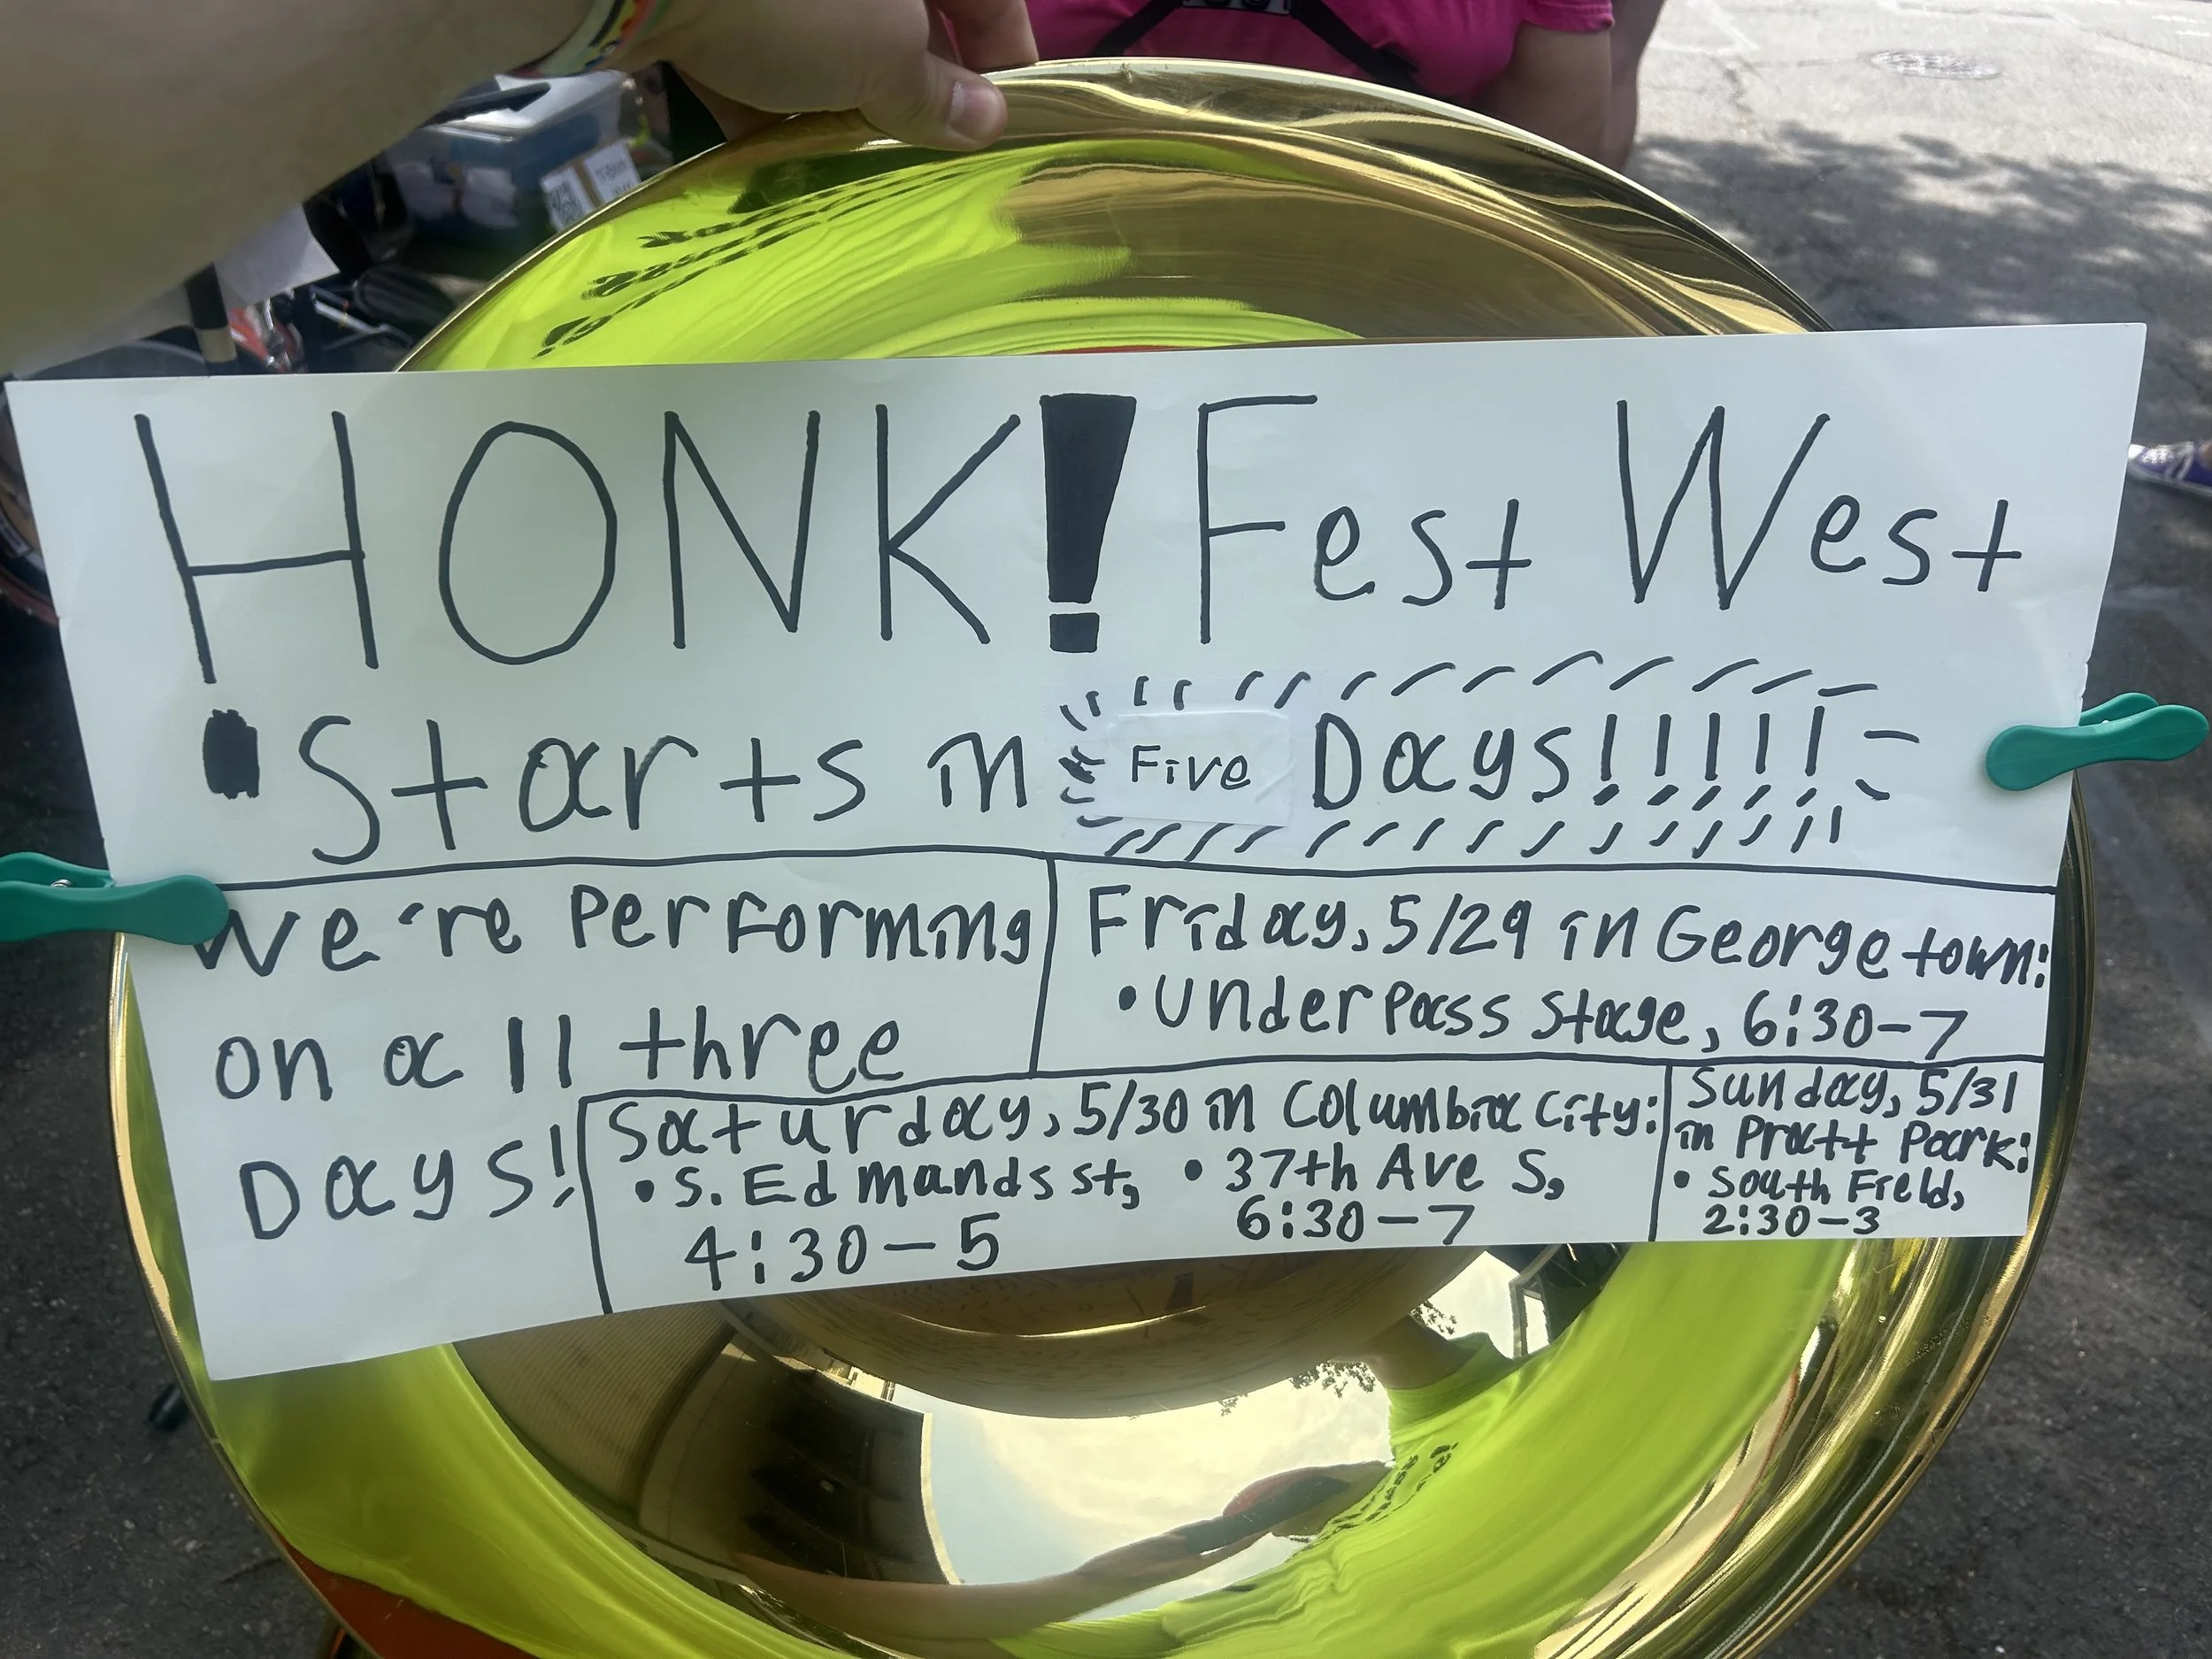 HONK! Fest West
• Starts in Five Days!!!!!!
We're Performing
on all three
Days!
Friday, 5/29 in Georgetown:
• Underpass Stage, 6:30-7
Saturday, 5/30 in Columbia City:
• S. Edmands st, • 37th Ave S,
4:30-5 6:30-7
Sunday, 5/31
in Pratt Park:
• South Field,
2:30-3